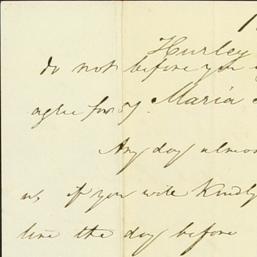 Hurley
do not before you
agree for 5/. Maria
Any day almos
us if you will Kindly
line the day before